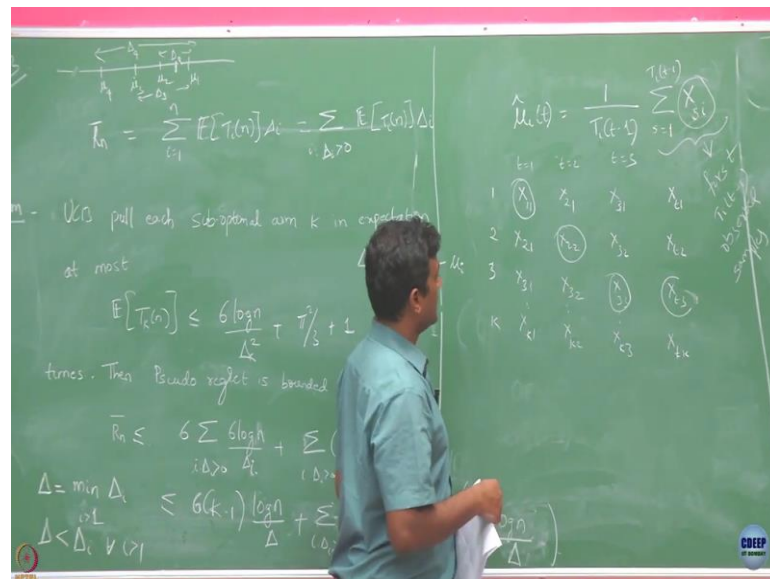 ← Δ₄ →
← Δ₂ →
μ₄ μ₃ μ₂ μ₁
← Δ₃ →
R̄n = Σ_{i=1}^{n} E[Ti(n)] Δi - Σ_{i: Δi>0} E[Ti(n)] Δi
UCB pull each sub-optimal arm K in expectation
at most
E[T_k(n)] ≤ 6logn / Δ_k² + π²/3 + 1
times. Then Pseudo reglet is bounded
R̄n ≤ 6 Σ_{i: Δi>0} 6logn / Δi + Σ
≤ 6(K-1) logn / Δ + Σ
logn / Δ )
Δ = min_{i>1} Δi
Δ < Δi ∀ i>1
μ̂i(t) = 1 / Ti(t-1) Σ_{s=1}^{Ti(t-1)} X_{si}
t=1 t=2 t=3
1 X₁₁ X₂₁ X₃₁ X_{t1}
2 X₂₁ X₂₂ X₃₂ X_{t2}
3 X₃₁ X₃₂ X₃ X_{t3}
⋮ ⋮ ⋮
K X_{K1} X_{K2} X_{K3} X_{tK}
observed
samples
CDEEP
IIT BOMBAY
NPTEL